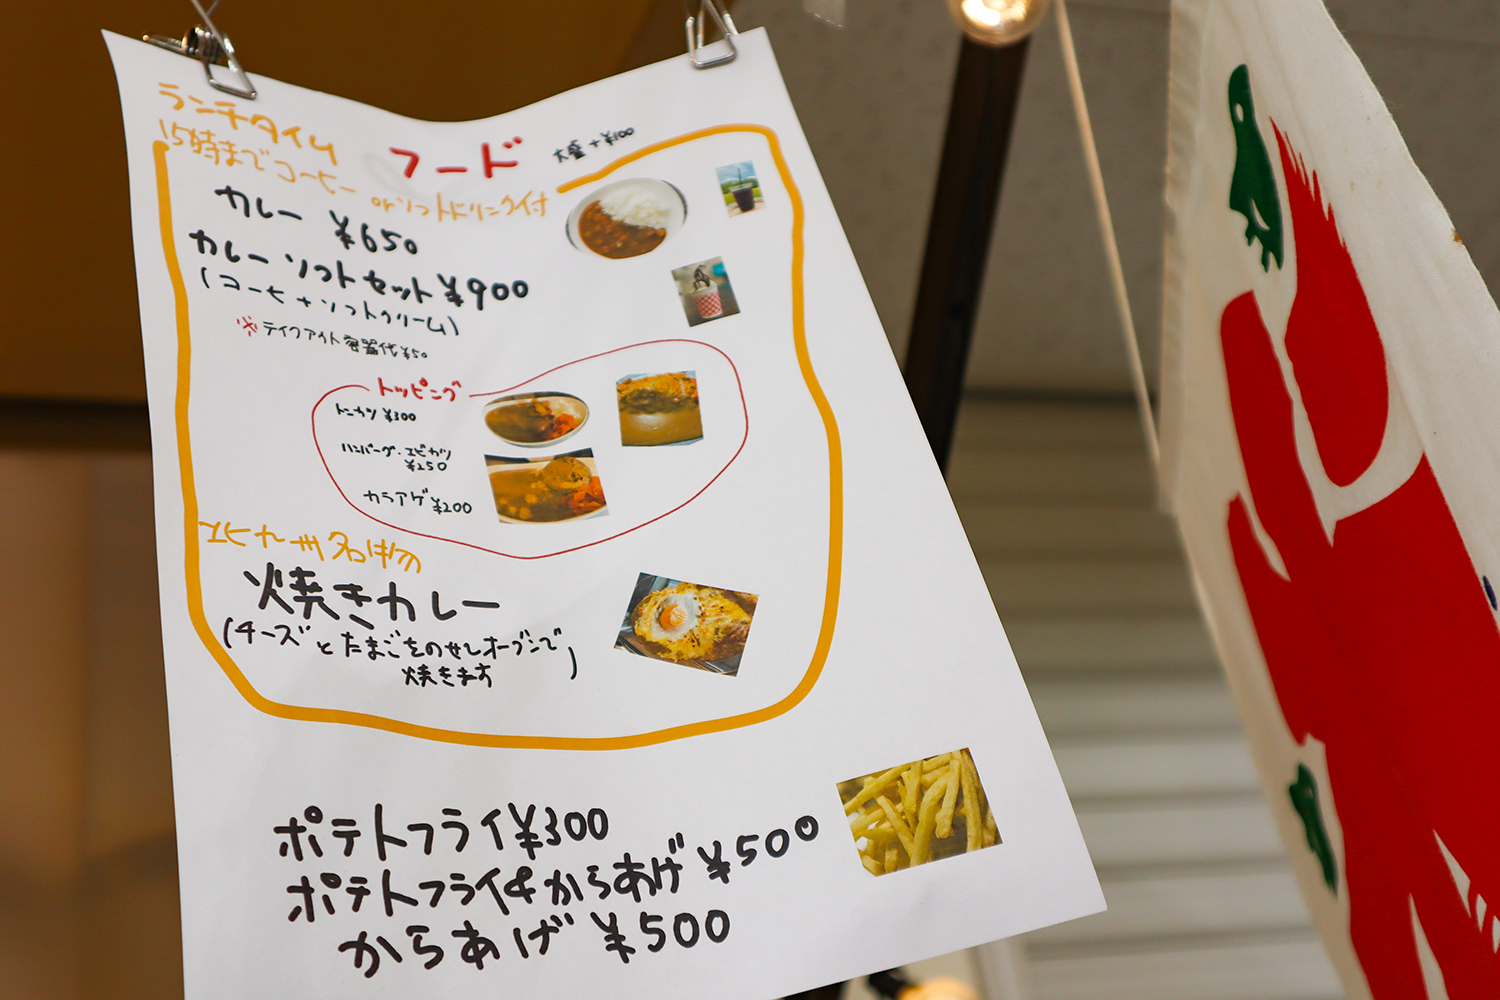 ランチタイム
15時までコーヒー
orソフトドリンク付
フード
大盛+¥100
カレー ¥650
カレーソフトセット¥900
(コーヒ+ソフトクリーム)
※テイクアウト容器代¥50
トッピング
トンカツ¥300
ハンバーグ・エビカツ
¥250
カラアゲ¥200
北九州名物
焼きカレー
(チーズとたまごをのせしオーブンで
焼きます)
ポテトフライ¥300
ポテトフライ&からあげ¥500
からあげ¥500